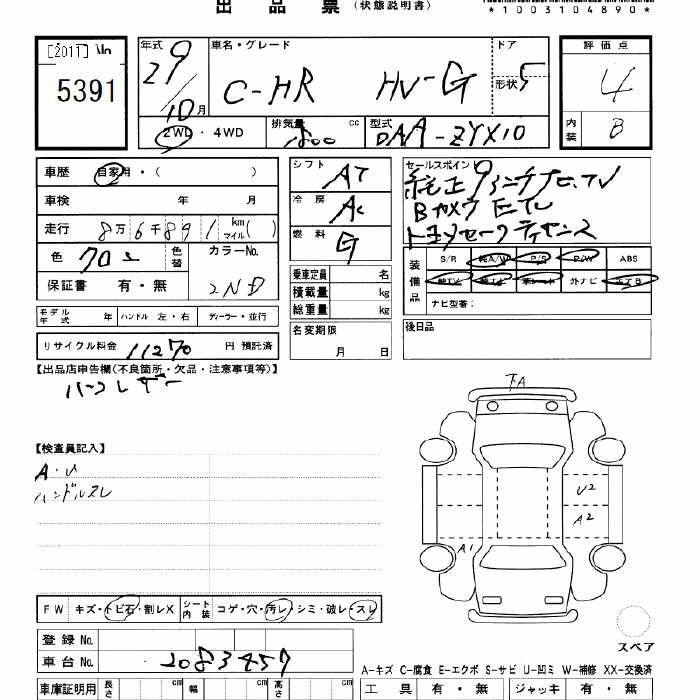 出品票 (状態説明書)
*1003104890*
[2017]
5391
年式 車名・グレード ドア 評価点
29 C-HR HV-G 5 4
10月 形状
2WD・4WD 排気量 1800 cc 型式 DAA-ZYX10 内装 B
車歴 自家用・( )
車検 年 月
走行 8万6千891 km マイル( )
色 クロ 色替 カラーNo.
保証書 有・無 2ND
モデル年式 年 ハンドル 左・右 ディーラー・並行
リサイクル料金 11270 円 預託済
シフト AT
冷房 AC
燃料 G
乗車定員 名
積載量 kg
総重量 kg
名変期限
月 日
セールスポイント
純正9インチナビ、TV
Bカメラ ETC
トヨタセーフティセンス
装備品 S/R 純A/W P/S P/W ABS
革シート 外ナビ エアB
ナビ型番:
後日品
【出品店申告欄(不良箇所・欠品・注意事項等)】
ハーフレザー
【検査員記入】
A・U
ハンドルスレ
下A
U2
A2
A1
FW キズ・トビ石・割レX シート内装 コゲ・穴・汚レ・シミ・破レ・スレ
登録No.
車台No. 2083457
スペア
A-キズ C-腐食 E-エクボ S-サビ U-凹ミ W-補修 XX-交換済
車庫証明用 長さ cm 幅 cm 高さ cm 工具 有・無 ジャッキ 有・無